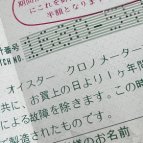 期間に
にこれを
半額となります。
計番号
TCH NO.
オイスター クロノメーター
共に、お買上の日より1ヶ年間
による故障を除きます。この時
ご製造されたものです。
様のお名前